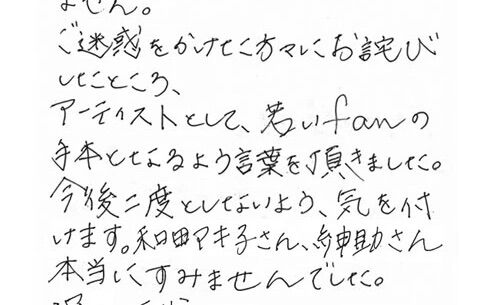 ません。
ご迷惑をかけた方々にお詫び
したところ、
アーティストとして、若いfanの
手本となるよう言葉を頂きました。
今後二度としないよう、気を付
けます。和田アキ子さん、紳助さん
本当にすみませんでした。